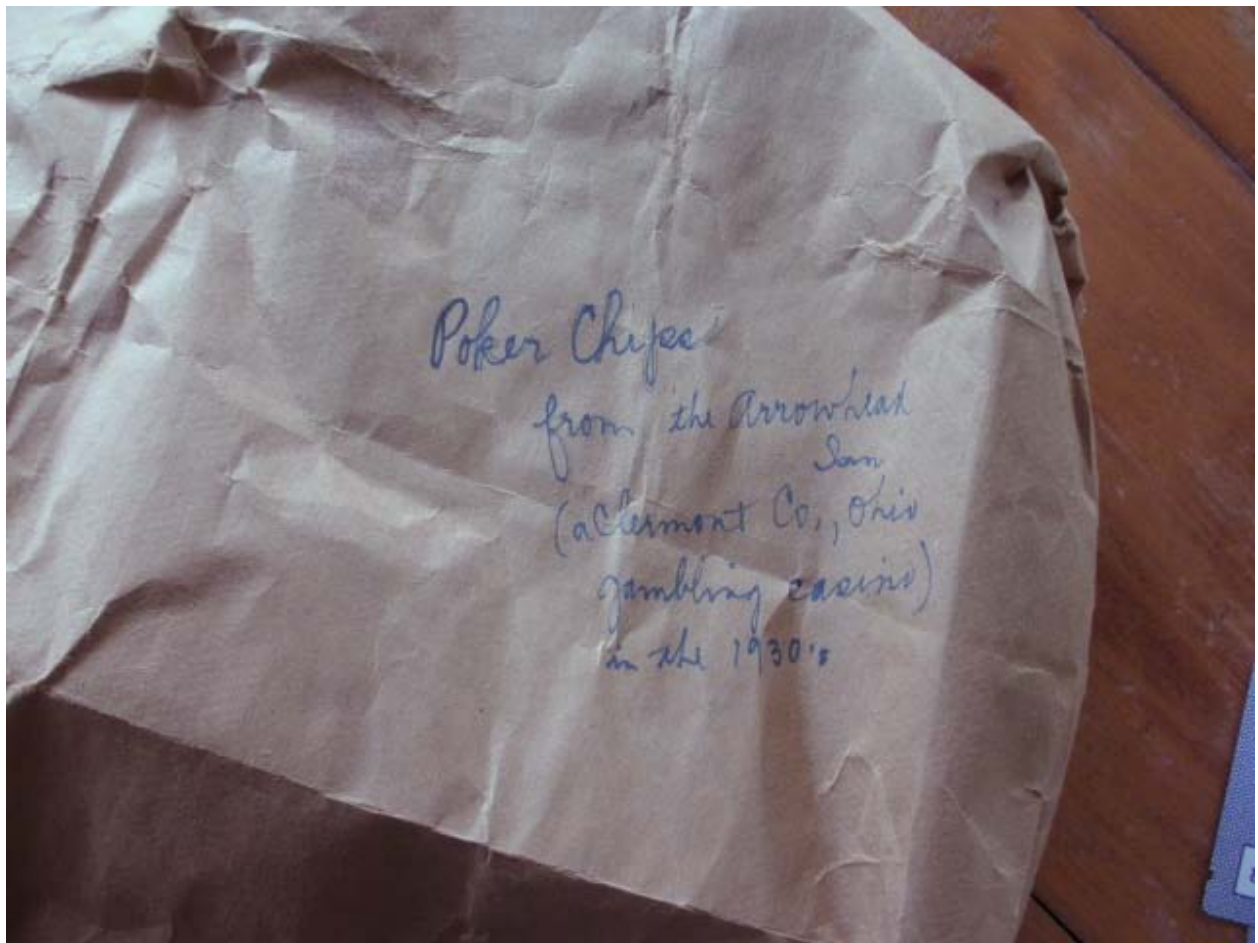 Poker Chips
from the Arrowhead
Inn
(a Clermont Co., Ohio
gambling casino)
in the 1930's